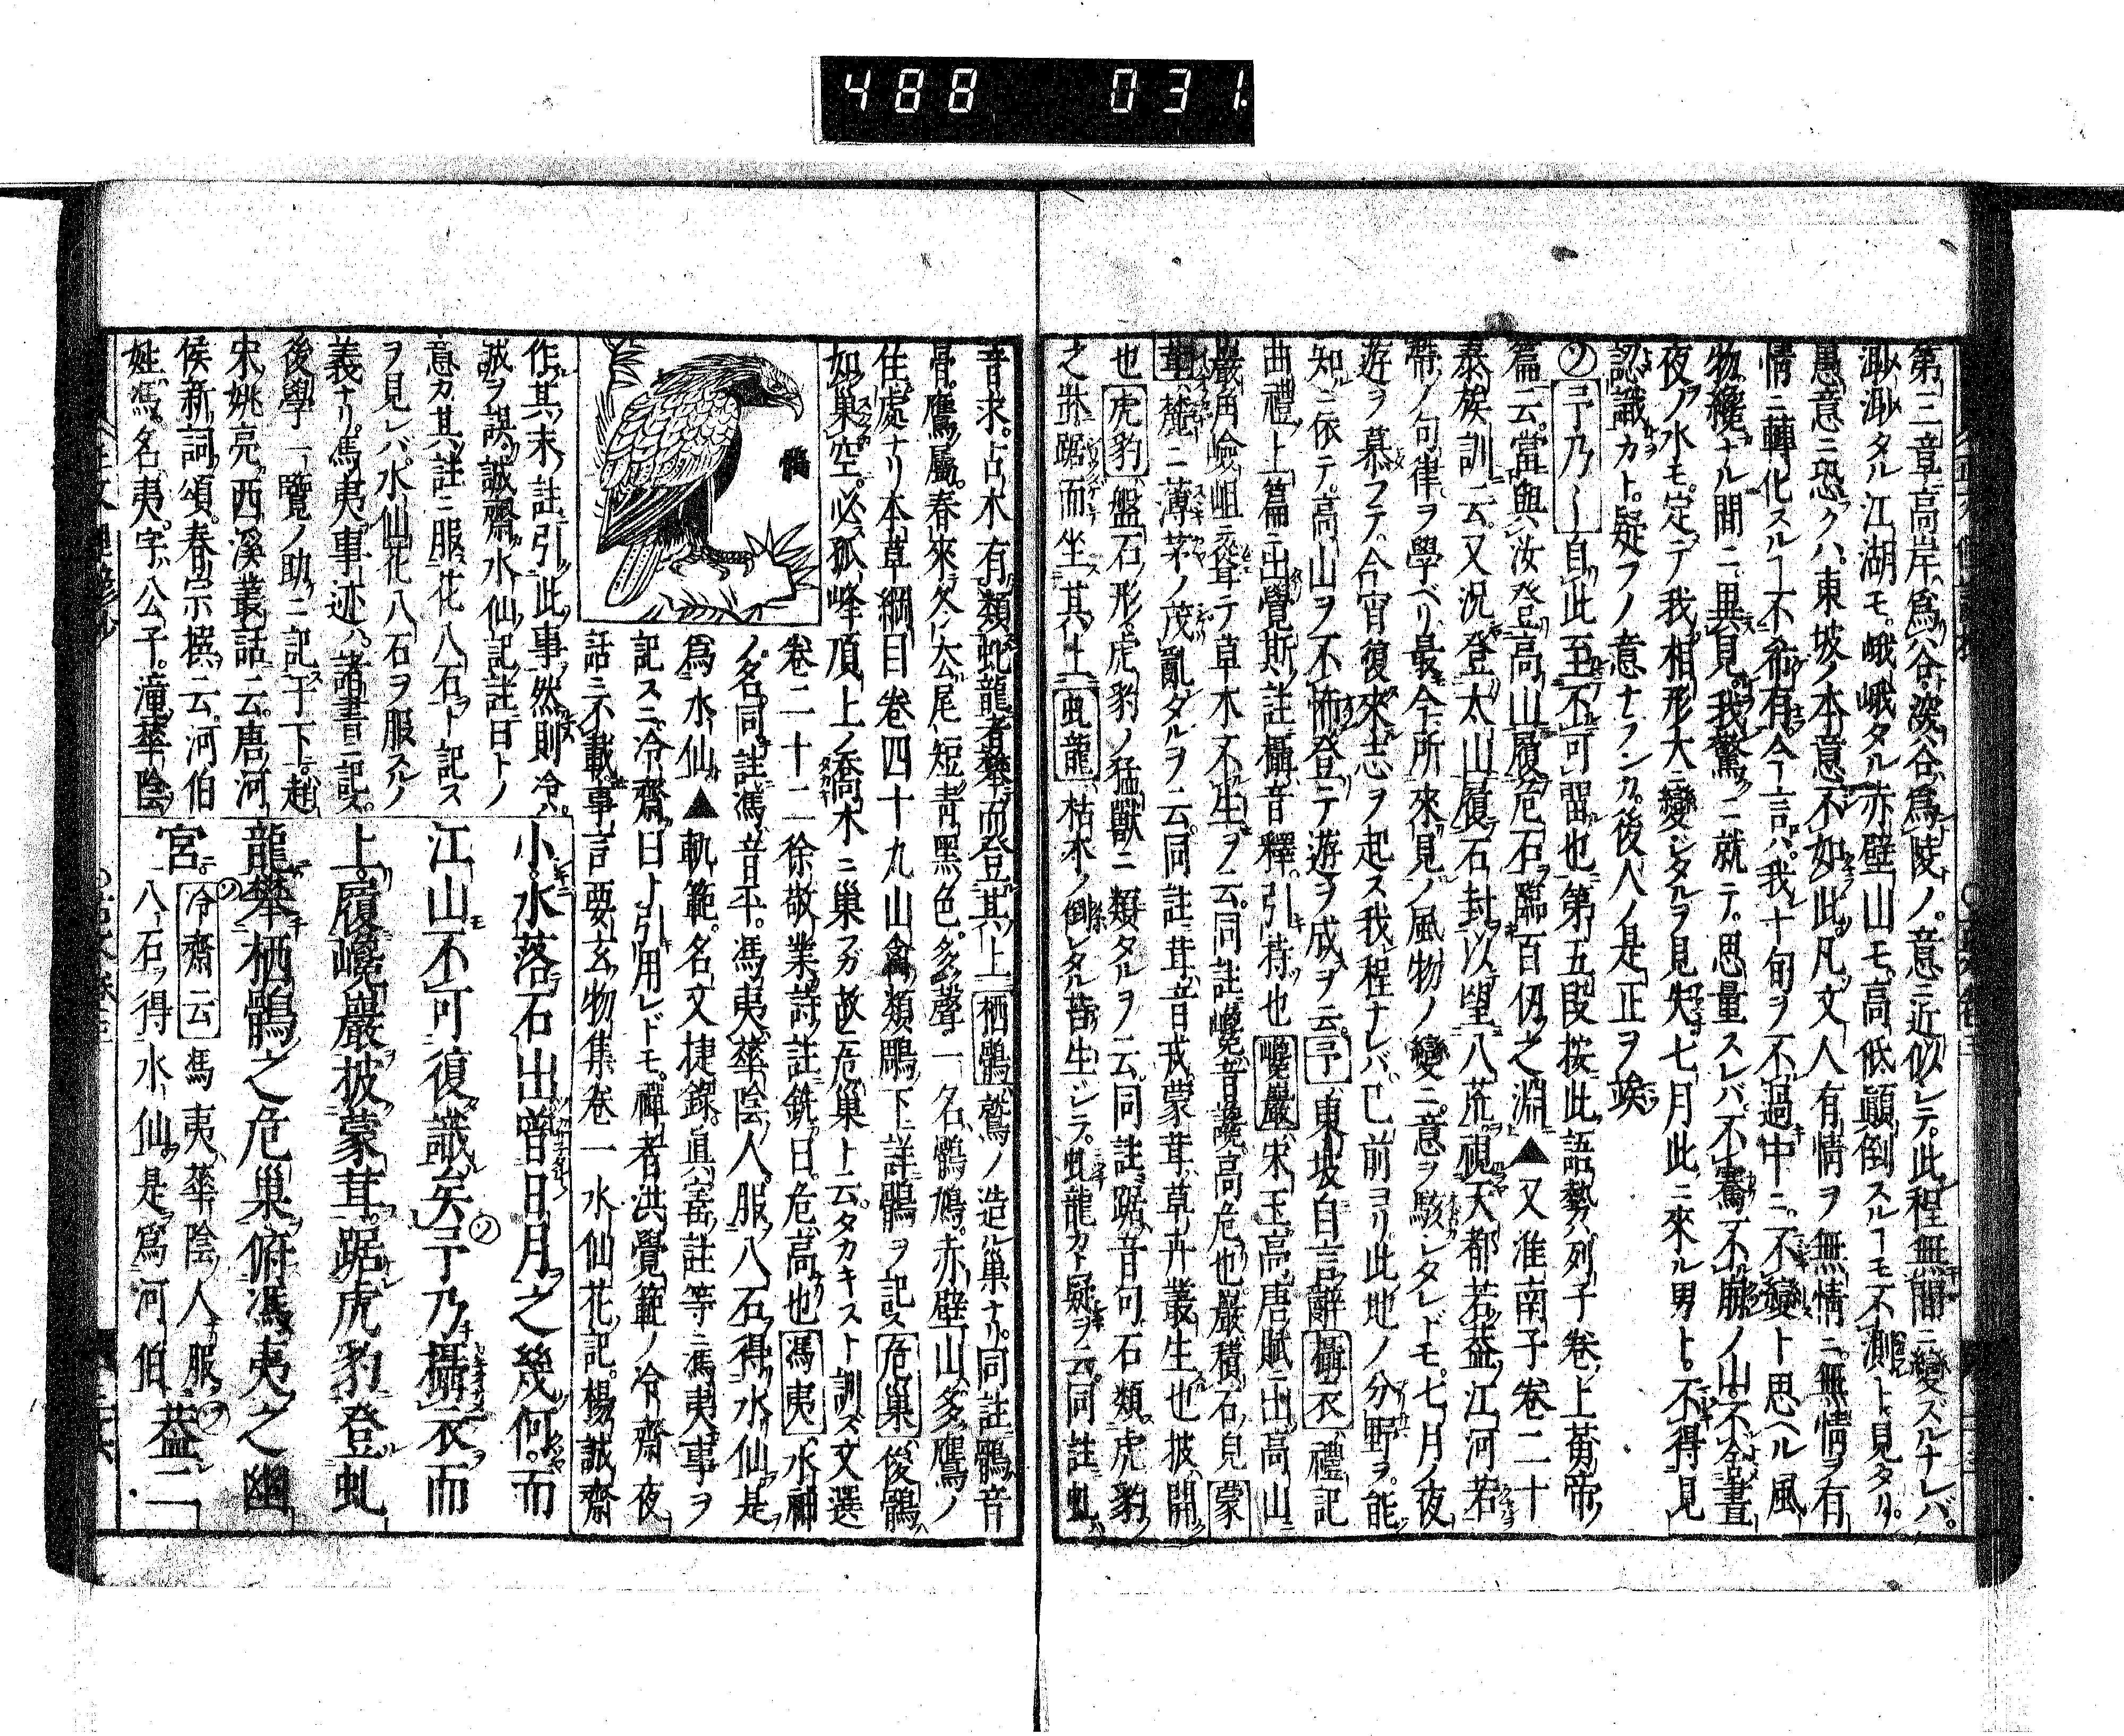 488 031.
第三章高岸爲谷深谷爲陵ノ意ニ近似シテ此程無間ニ變ズルナレバ
渺渺タル江湖モ峨峨タル赤壁山モ高低顚倒スルーモ不測ト見タリ
愚意ニ恐クハ東坡ノ本意不如此凡文人有情ヲ無情ニ無情ヲ有
情ニ轉化スルー不希有今一言ハ我十旬ヲ不過中ニ不變ト思ヘル風
物纔ナル間ニ異見我驚ニ就テ思量スレバ不騫不崩ノ山不舍晝
夜ノ水モ定テ我相形大ニ變シタルヲ見失七月此ニ來ル男ト不得見
認識カト疑フノ意ナランカ後人ノ是正ヲ竢
予乃 自此至不可留也第五段按此語勢ハ列子卷上黃帝
篇云當與汝登高山履危石臨百仞之淵▲又淮南子卷二十
泰族訓云又況登太山履石封以望八荒視天都若葢江河若
帶ノ句律ヲ學ベリ最今所來見ノ風物ノ變ニ意ヲ駭シタレドモ七月ノ夜
遊ヲ慕フテ今宵復來志ヲ起ス我程ナレバ已前ヨリ此地ノ分野ヲ能
知ニ依テ高山ヲ不怖登テ遊ヲ成ヲ云予東坡自言辭攝衣禮記
曲禮上篇ニ出覺斯註攝音釋引持也巉巖宋玉高唐賦ニ出高山
巖角險岨ニ聳テ草木不生ヲ云同註巉音讒高危也巖積石皃蒙
茸麓ニ薄茅ノ茂亂タルヲ云同註茸音戎蒙茸草丱叢生也披開
也虎豹盤石形虎豹ノ猛獸ニ類タルヲ云同註踞音句石類虎豹
之狀踞而坐其上虬龍枯木ノ倒レタル昔生ジラ虬龍カト疑ヲ云同註虬
音求古木有類虵龍者攀而登其上栖鶻鷲ノ造ル巢ナリ同註鶻音
骨鷹屬春來冬去尾短靑黑色多聲一名鶻鳩赤壁山多鷹ノ
住處ナリ本草綱目卷四十九山禽類鵰下詳鶻ヲ記ス危巢後鶻
如巢空必孤峰頂上ノ喬木ニ巢フガ故ニ危巢ト云タカキスト訓ズ文選
卷二十二徐敬業詩註銑曰危高也馮夷水神
ノ名同註馮音平馮夷華陰人服八石得水仙是
爲水仙▲軌範名文捷錄眞寶註等ニ馮夷事ヲ
記スニ冷齋曰ト引用レドモ禪者洪覺範ノ冷齋夜
話ニ不載事言要玄物集卷一水仙花記楊誠齋
鶻
作其末註引此事然則冷
誠ヲ誤誠齋水仙記註曰トノ
意カ其註ニ服花八石ト記ス
ヲ見レバ水仙花八石ヲ服スルノ
義ナリ馮夷事迹ハ諸書ニ記ス
後學一覽ノ助ニ記于下趙
宋姚亮西溪叢話云唐河
侯新詞頌春宗撰云河伯
姓馮名夷字公子潼華陰
小水落石出曾日月之幾何而
江山不可復識矣予乃攝衣而
上履巉巖披蒙茸踞虎豹登虬
龍攀栖鶻之危巢俯馮夷之幽
宮 冷齋云馮夷華陰人服
八石得水仙是爲河伯 葢二